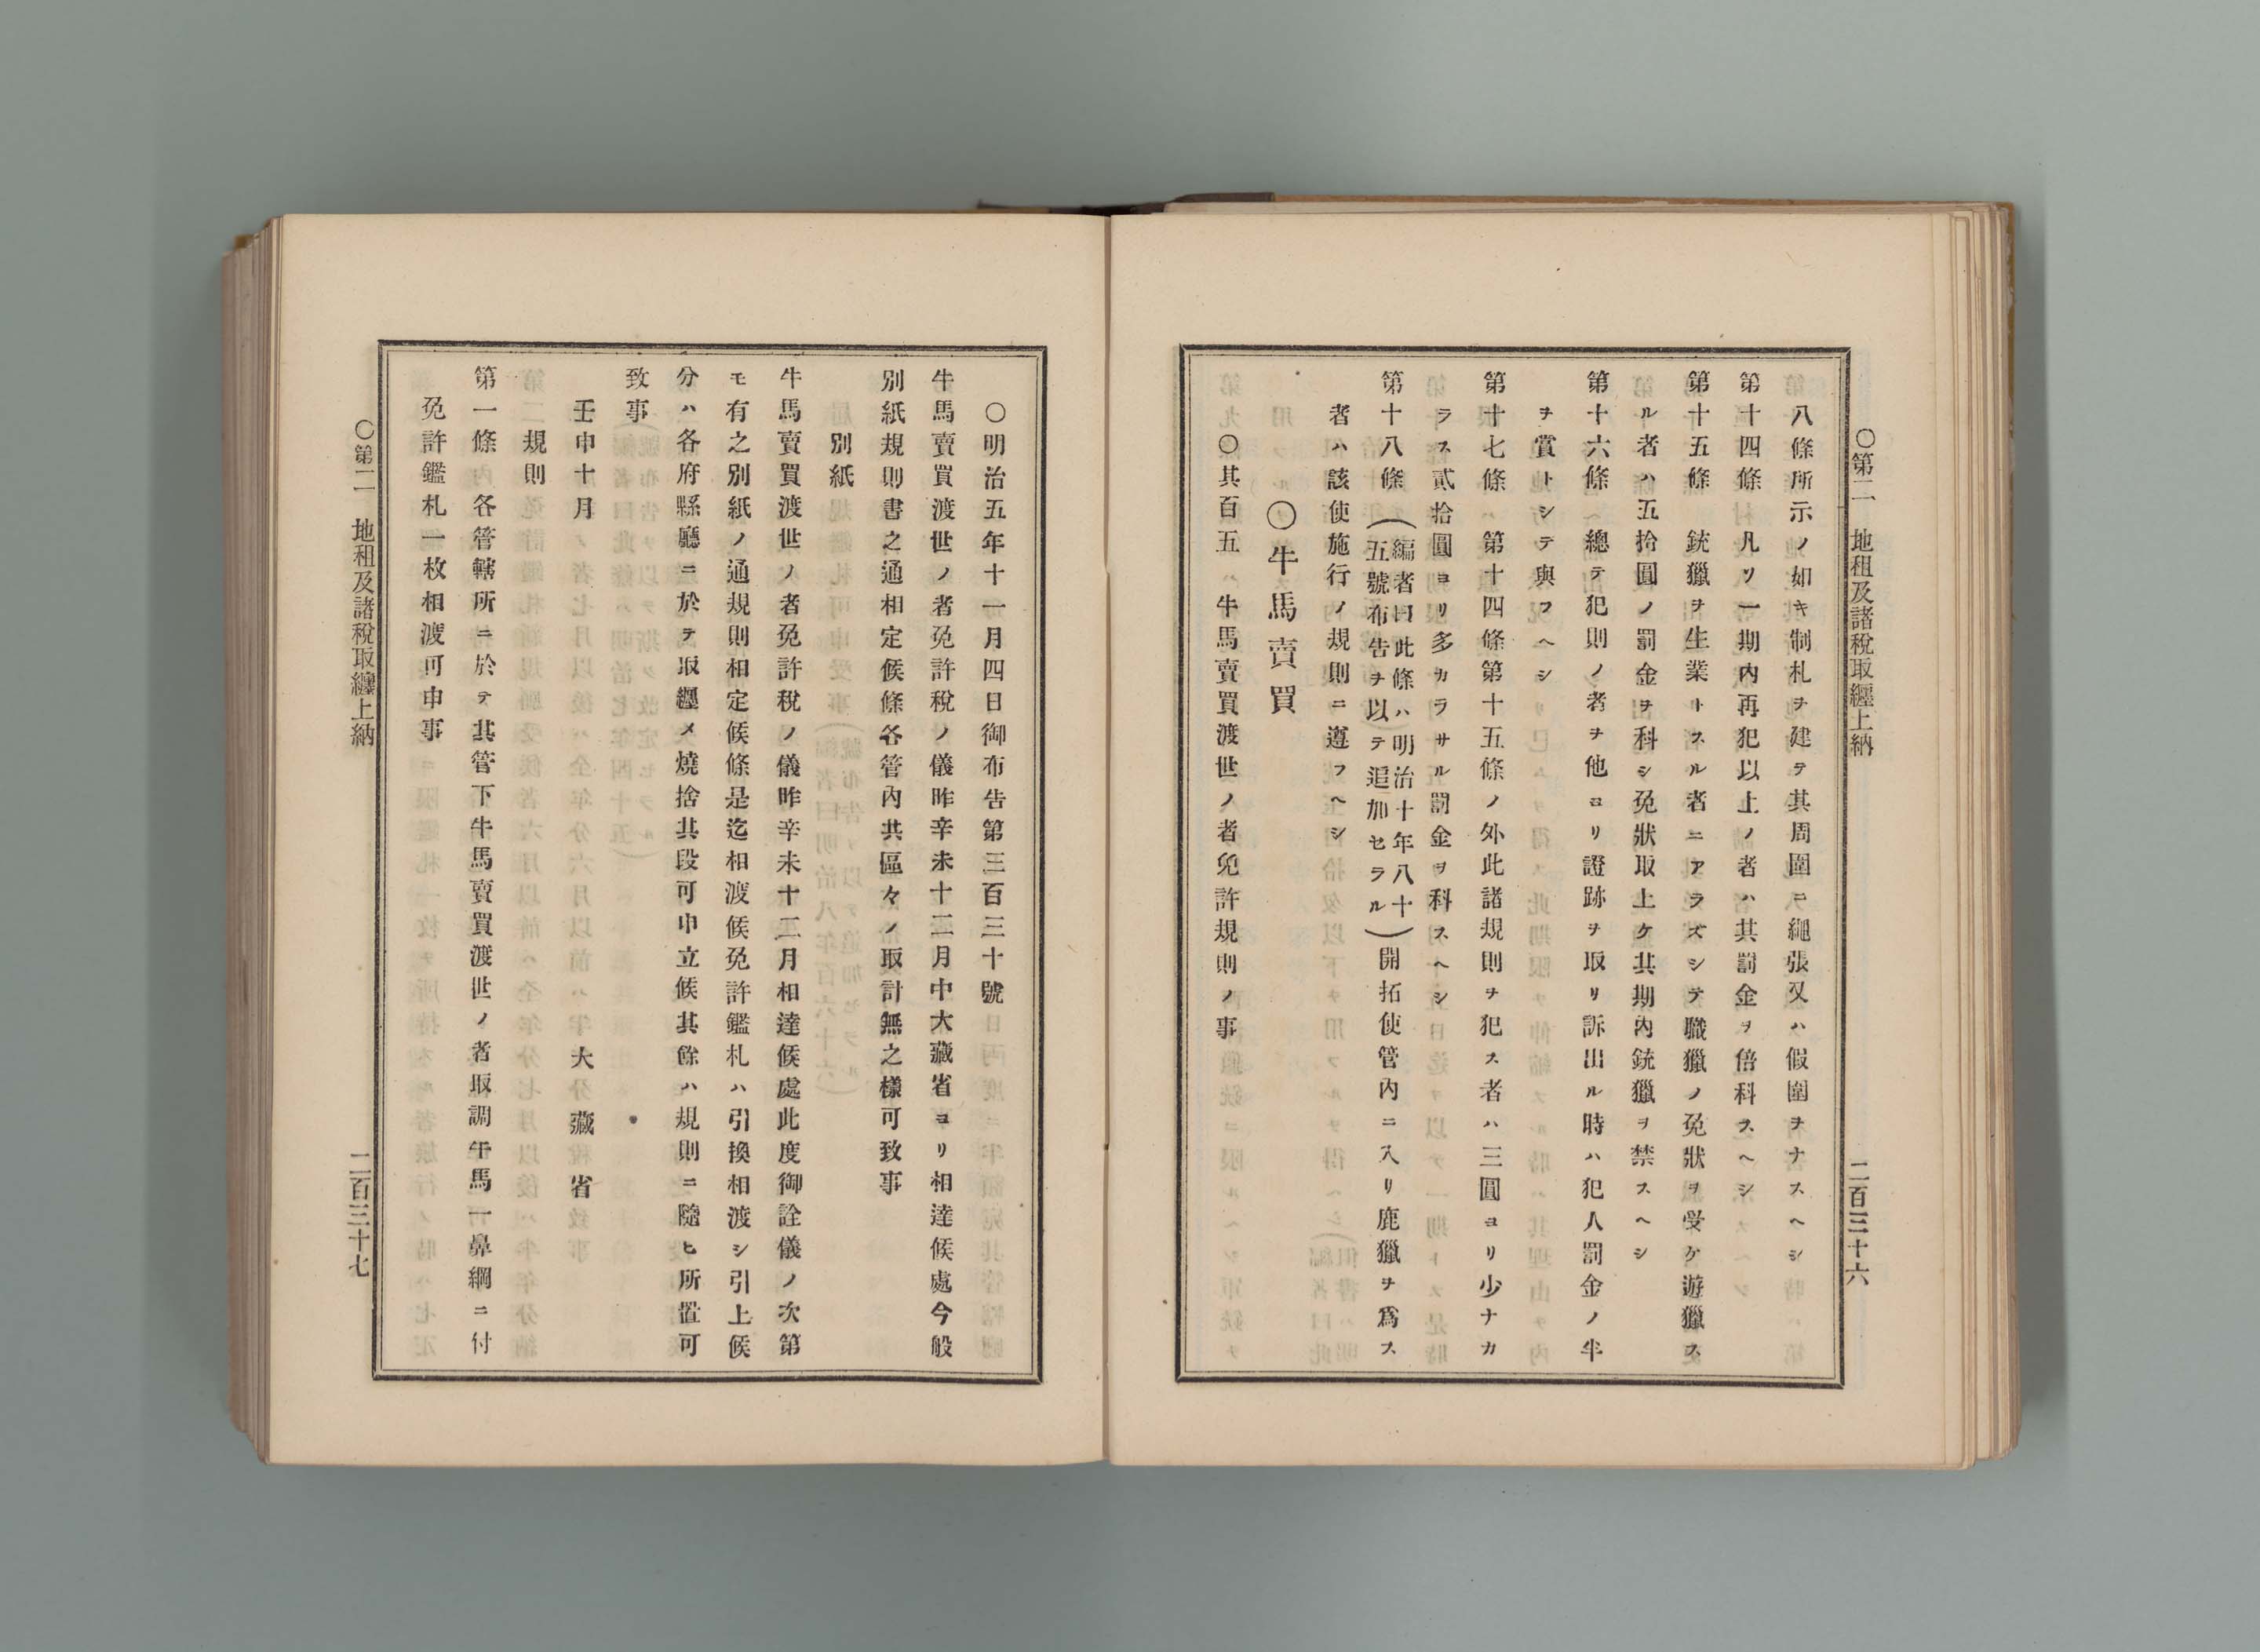 ○第二　地租及諸稅取纏上納　二百三十六
八條所示ノ如キ制札ヲ建テ其周圍ニ繩張又ハ假圍ヲナスヘシ
第十四條　凡ソ一期內再犯以上ノ者ハ其罰金ヲ倍科スヘシ
第十五條　銃獵ヲ生業トスル者ニアラズシテ職獵ノ免狀ヲ受ケ遊獵ス
ル者ハ五拾圓ノ罰金ヲ科シ免狀取上ケ其期內銃獵ヲ禁スヘシ
第十六條　總テ犯則ノ者ヲ他ヨリ證跡ヲ取リ訴出ル時ハ犯人罰金ノ半
ヲ賞トシテ與フヘシ
第十七條　第十四條第十五條ノ外此諸規則ヲ犯ス者ハ三圓ヨリ少ナカ
ラス貳拾圓ヨリ多カラサル罰金ヲ科スヘシ
第十八條（編者曰此條ハ明治十年八十五號布吿ヲ以テ追加セラル）開拓使管內ニ入リ鹿獵ヲ爲ス
者ハ該使施行ノ規則ニ遵フヘシ
○牛馬賣買
○其百五　牛馬賣買渡世ノ者免許規則ノ事
○明治五年十一月四日御布吿第三百三十號
牛馬賣買渡世ノ者免許稅ノ儀昨辛未十二月中大藏省ヨリ相達候處今般
別紙規則書之通相定候條各管內共區々ノ取計無之樣可致事
別紙
牛馬賣買渡世ノ者免許稅ノ儀昨辛未十二月相達候處此度御詮儀ノ次第
モ有之別紙ノ通規則相定候條是迄相渡候免許鑑札ハ引換相渡シ引上候
分ハ各府縣廳ニ於テ取纒メ燒捨其段可申立候其餘ハ規則ニ隨ヒ所置可
致事
壬申十月　大藏省
規則
第一條　各管轄所ニ於テ其管下牛馬賣買渡世ノ者取調牛馬一鼻綱ニ付
免許鑑札一枚相渡可申事
○第二　地租及諸稅取纏上納　二百三十七